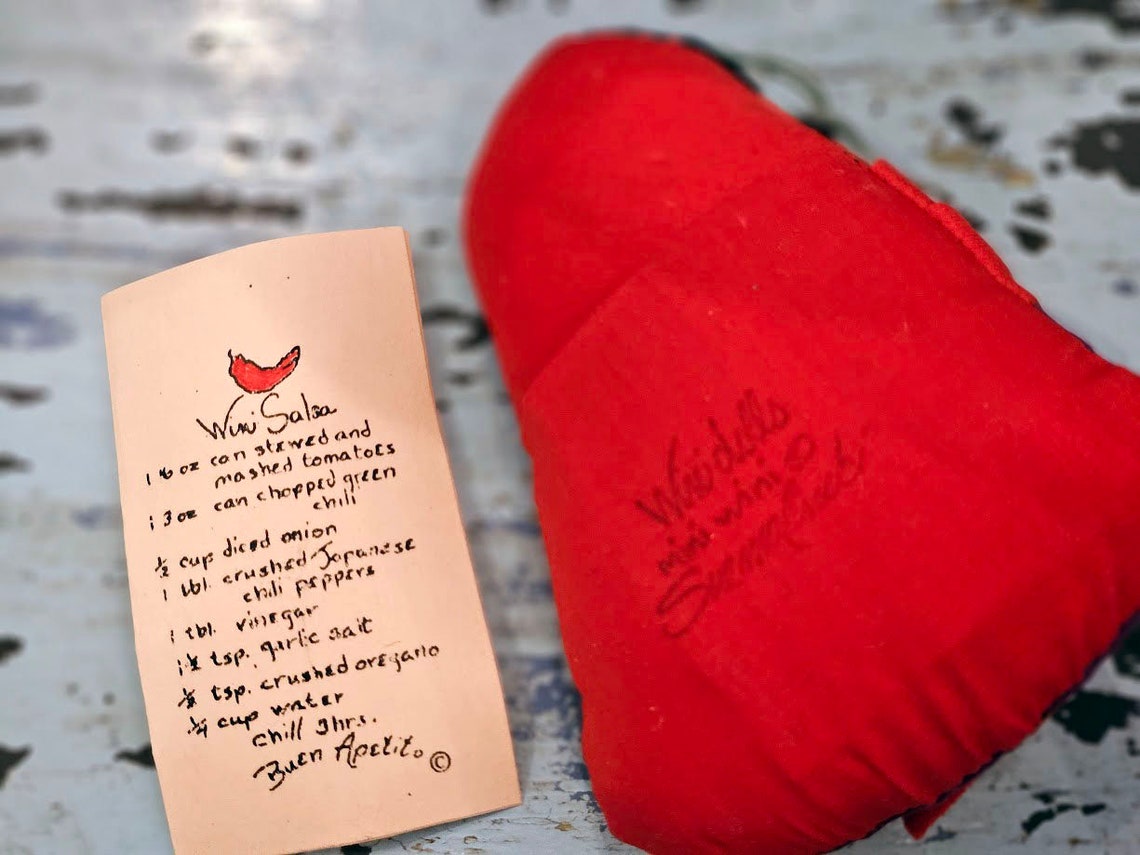 Wini Salsa
1 16 oz can stewed and
mashed tomatoes
1 3 oz can chopped green
chili
½ cup diced onion
1 tbl. crushed Japanese
chili peppers
1 tbl. vinegar
tsp. garlic salt
tsp. crushed oregano
¼ cup water
chill 3hrs.
Buen Apetito ©
Winidolls
mini wini